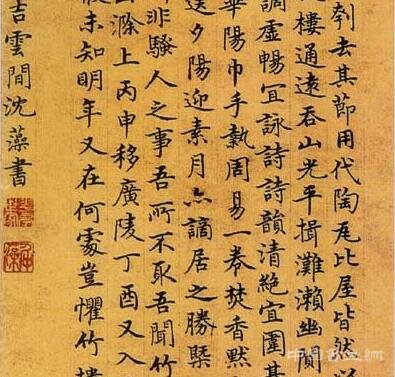 刳去其節用代陶瓦比屋皆然以
樓通遠吞山光平挹灘瀨幽闃
調虛暢宜詠詩詩韻清絕宜圍
華陽巾手執周易一卷焚香默
送夕陽迎素月亦謫居之勝槩
非騷人之事吾所不取吾聞竹
滁上丙申移廣陵丁酉又入
暇未知明年又在何處豈懼竹樓
吉雲間沈藻書